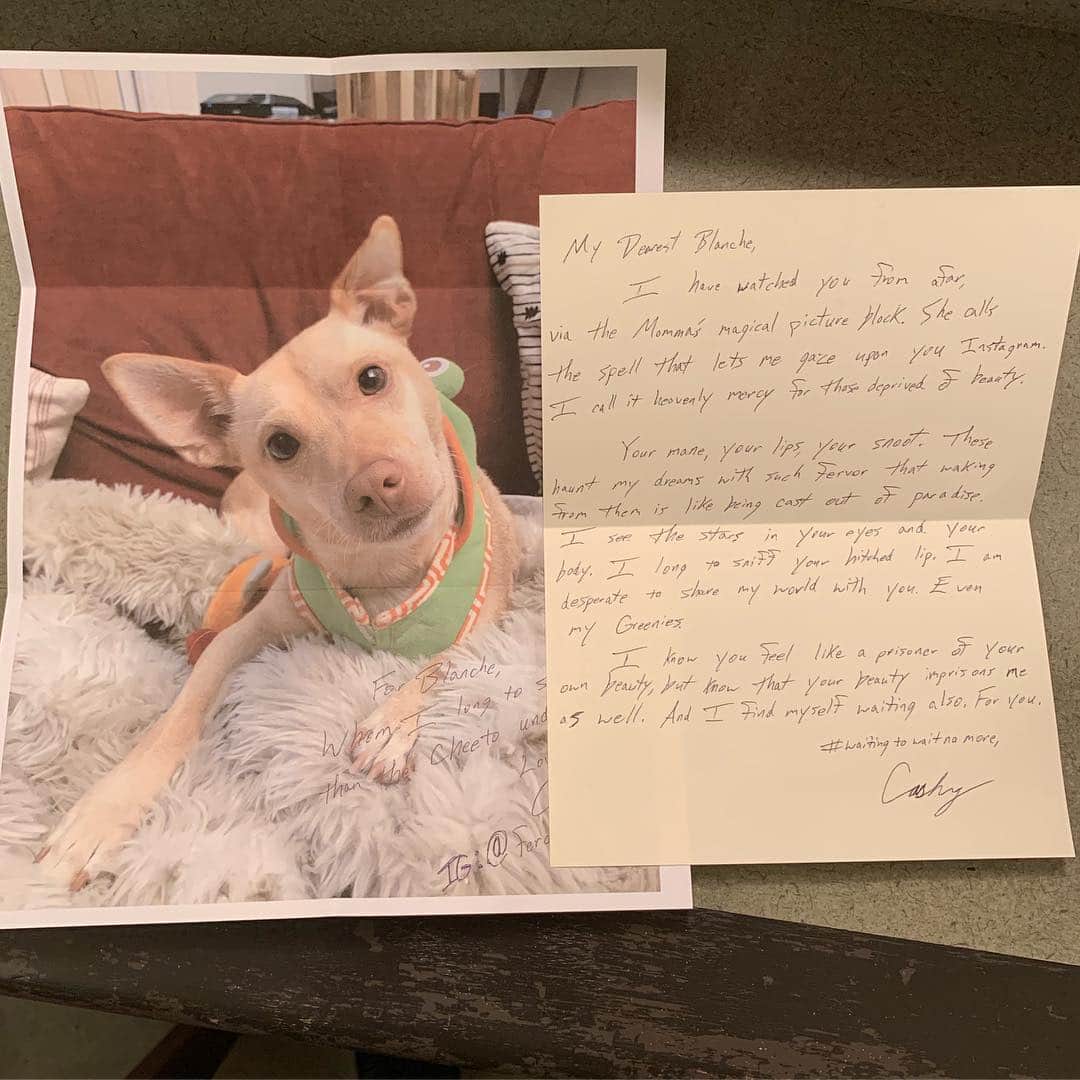 For Blanche,
Whom I long to s
than the Cheeto und
Lov
C
IG: @Fero
My Dearest Blanche,
I have watched you from afar,
via the Momma's magical picture block. She calls
the spell that lets me gaze upon you Instagram.
I call it heavenly mercy for those deprived of beauty.
Your mane, your lips, your snoot. These
haunt my dreams with such fervor that waking
from them is like being cast out of paradise.
I see the stars in your eyes and your
body. I long to sniff your hitched lip. I am
desperate to share my world with you. Even
my Greenies.
I know you feel like a prisoner of your
own beauty, but know that your beauty imprisons me
as well. And I find myself waiting also. For you.
#waitingtowaitnomore,
Cashy